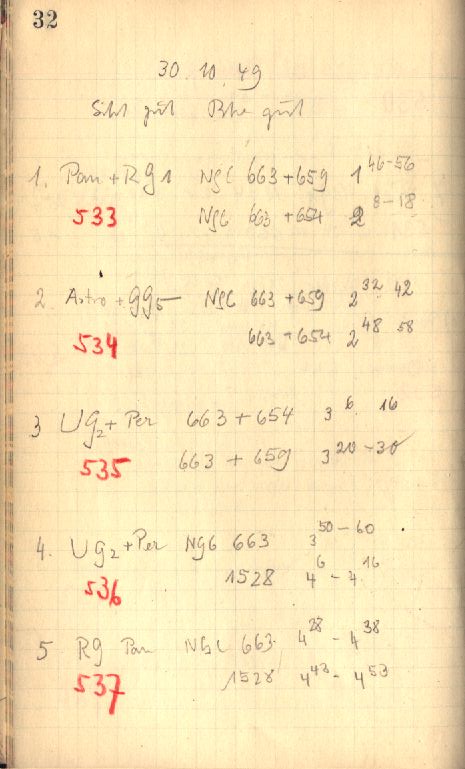 32
30. 10. 49
Sicht gut Bhe gut
1. Pan + Rg1 NGC 663 + 659 1 46-56
533 NGC 663 + 654 2 8-18
2. Astro + gg5 NGC 663 + 659 2 32 42
534 663 + 654 2 48 58
3 Ug2 + Per 663 + 654 3 6 16
535 663 + 659 3 20-30
4. Ug2 + Per NGC 663 3 50-60
536 1528 4 6 - 4 16
5 Rg Pan NGC 663 4 28 - 4 38
537 1528 4 43 - 4 53